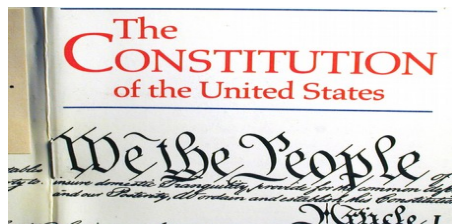 The
CONSTITUTION
of the United States
We the People
insure domestic Tranquility, provide for the common
and our Posterity, do ordain and establish this Constitution
Article I